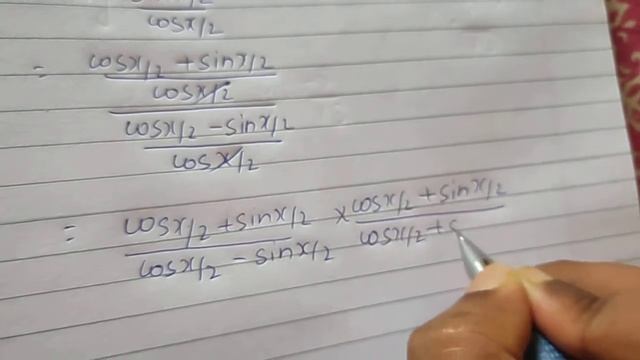 cosx/2
= cosx/2 + sinx/2
cosx/2
cosx/2 - sinx/2
cosx/2
= cosx/2 + sinx/2 × cosx/2 + sinx/2
cosx/2 - sinx/2 cosx/2 + s